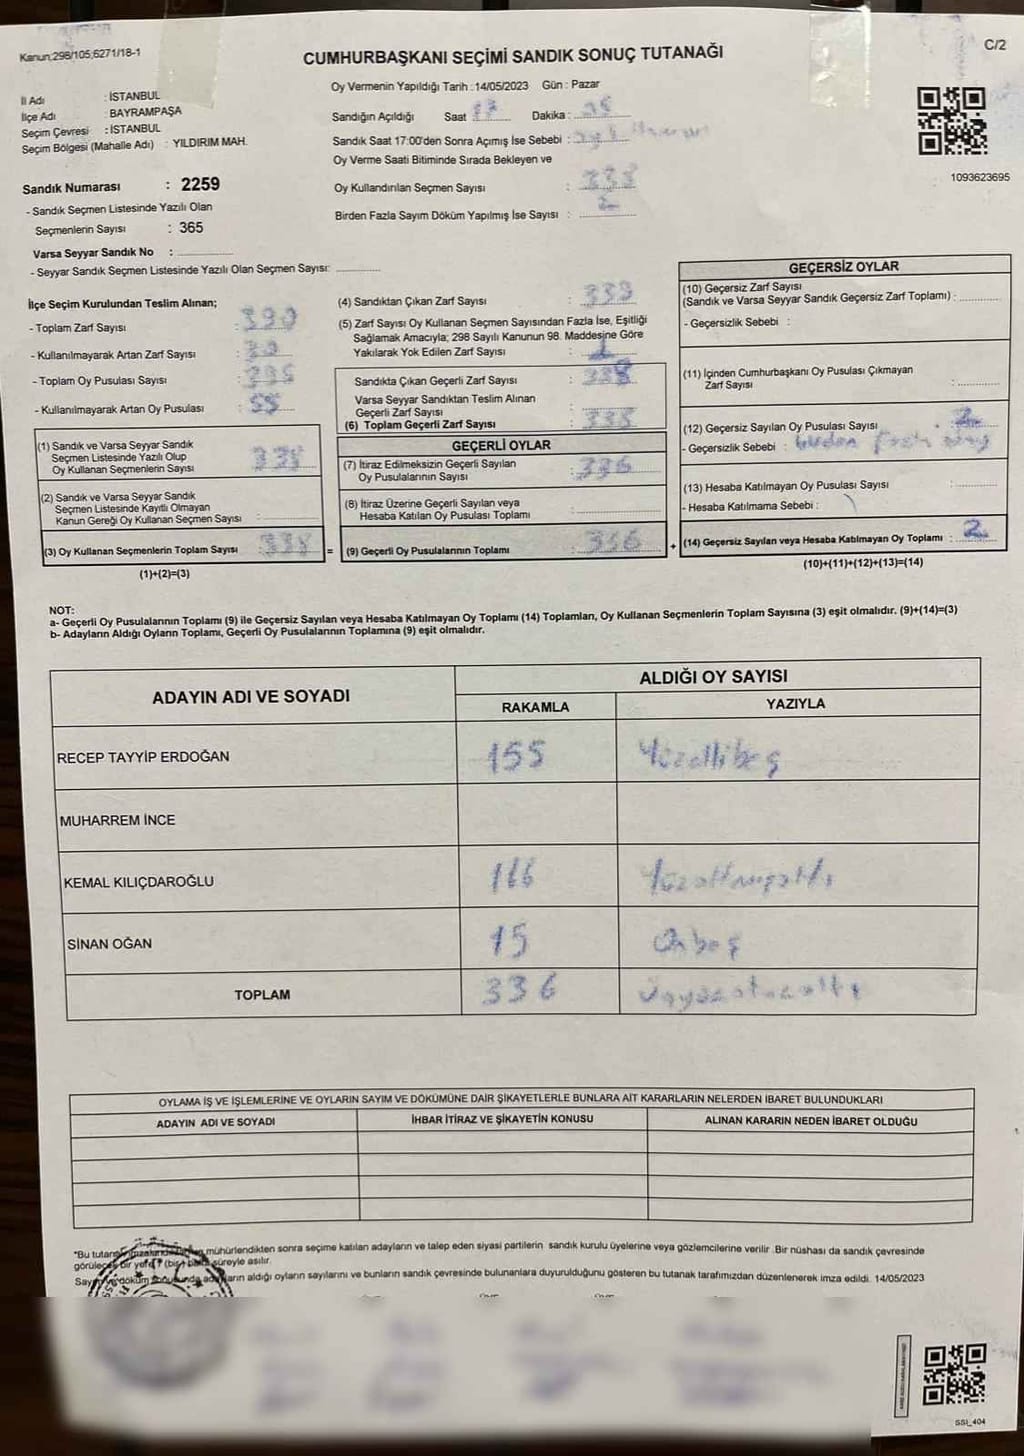 Kanun:298/105,6271/18-1
C/2
CUMHURBAŞKANI SEÇİMİ SANDIK SONUÇ TUTANAĞI
İl Adı : İSTANBUL
İlçe Adı : BAYRAMPAŞA
Seçim Çevresi : İSTANBUL
Seçim Bölgesi (Mahalle Adı) : YILDIRIM MAH.
Sandık Numarası : 2259
- Sandık Seçmen Listesinde Yazılı Olan
Seçmenlerin Sayısı : 365
Varsa Seyyar Sandık No :
- Seyyar Sandık Seçmen Listesinde Yazılı Olan Seçmen Sayısı:
Oy Vermenin Yapıldığı Tarih : 14/05/2023 Gün : Pazar
Sandığın Açıldığı Saat 17 Dakika :
Sandık Saat 17:00'den Sonra Açımış İse Sebebi :
Oy Verme Saati Bitiminde Sırada Bekleyen ve
Oy Kullandırılan Seçmen Sayısı : 338
Birden Fazla Sayım Döküm Yapılmış İse Sayısı : 2
1093623695
İlçe Seçim Kurulundan Teslim Alınan;
- Toplam Zarf Sayısı : 390
- Kullanılmayarak Artan Zarf Sayısı :
- Toplam Oy Pusulası Sayısı : 395
- Kullanılmayarak Artan Oy Pusulası : 55
(1) Sandık ve Varsa Seyyar Sandık
Seçmen Listesinde Yazılı Olup
Oy Kullanan Seçmenlerin Sayısı : 338
(2) Sandık ve Varsa Seyyar Sandık
Seçmen Listesinde Kayıtlı Olmayan
Kanun Gereği Oy Kullanan Seçmen Sayısı :
(3) Oy Kullanan Seçmenlerin Toplam Sayısı : 338
(1)+(2)=(3)
(4) Sandıktan Çıkan Zarf Sayısı : 339
(5) Zarf Sayısı Oy Kullanan Seçmen Sayısından Fazla İse, Eşitliği
Sağlamak Amacıyla; 298 Sayılı Kanunun 98. Maddesine Göre
Yakılarak Yok Edilen Zarf Sayısı : 1
Sandıkta Çıkan Geçerli Zarf Sayısı : 338
Varsa Seyyar Sandıktan Teslim Alınan
Geçerli Zarf Sayısı :
(6) Toplam Geçerli Zarf Sayısı : 338
GEÇERLİ OYLAR
(7) İtiraz Edilmeksizin Geçerli Sayılan
Oy Pusulalarının Sayısı : 336
(8) İtiraz Üzerine Geçerli Sayılan veya
Hesaba Katılan Oy Pusulası Toplamı :
= (9) Geçerli Oy Pusulalarının Toplamı : 336
GEÇERSİZ OYLAR
(10) Geçersiz Zarf Sayısı
(Sandık ve Varsa Seyyar Sandık Geçersiz Zarf Toplamı) :
- Geçersizlik Sebebi :
(11) İçinden Cumhurbaşkanı Oy Pusulası Çıkmayan
Zarf Sayısı :
(12) Geçersiz Sayılan Oy Pusulası Sayısı : 2
- Geçersizlik Sebebi :
(13) Hesaba Katılmayan Oy Pusulası Sayısı :
- Hesaba Katılmama Sebebi :
+ (14) Geçersiz Sayılan veya Hesaba Katılmayan Oy Toplamı : 2
(10)+(11)+(12)+(13)=(14)
NOT:
a- Geçerli Oy Pusulalarının Toplamı (9) ile Geçersiz Sayılan veya Hesaba Katılmayan Oy Toplamı (14) Toplamları, Oy Kullanan Seçmenlerin Toplam Sayısına (3) eşit olmalıdır. (9)+(14)=(3)
b- Adayların Aldığı Oyların Toplamı, Geçerli Oy Pusulalarının Toplamına (9) eşit olmalıdır.
ADAYIN ADI VE SOYADI
ALDIĞI OY SAYISI
RAKAMLA YAZIYLA
RECEP TAYYİP ERDOĞAN 155 Yüzellibeş
MUHARREM İNCE
KEMAL KILIÇDAROĞLU 166 Yüzaltmışaltı
SİNAN OĞAN 15 Onbeş
TOPLAM 336 üçyüzotuzaltı
OYLAMA İŞ VE İŞLEMLERİNE VE OYLARIN SAYIM VE DÖKÜMÜNE DAİR ŞİKAYETLERLE BUNLARA AİT KARARLARIN NELERDEN İBARET BULUNDUKLARI
ADAYIN ADI VE SOYADI İHBAR İTİRAZ VE ŞİKAYETİN KONUSU ALINAN KARARIN NEDEN İBARET OLDUĞU
*Bu tutanak mühürlendikten sonra seçime katılan adayların ve talep eden siyasi partilerin sandık kurulu üyelerine veya gözlemcilerine verilir .Bir nüshası da sandık çevresinde
görülecek bir yere 1 (bir) hafta süreyle asılır.
Sayım ve döküm sonunda adayların aldığı oyların sayılarını ve bunların sandık çevresinde bulunanlara duyurulduğunu gösteren bu tutanak tarafımızdan düzenlenerek imza edildi. 14/05/2023
SSI_404